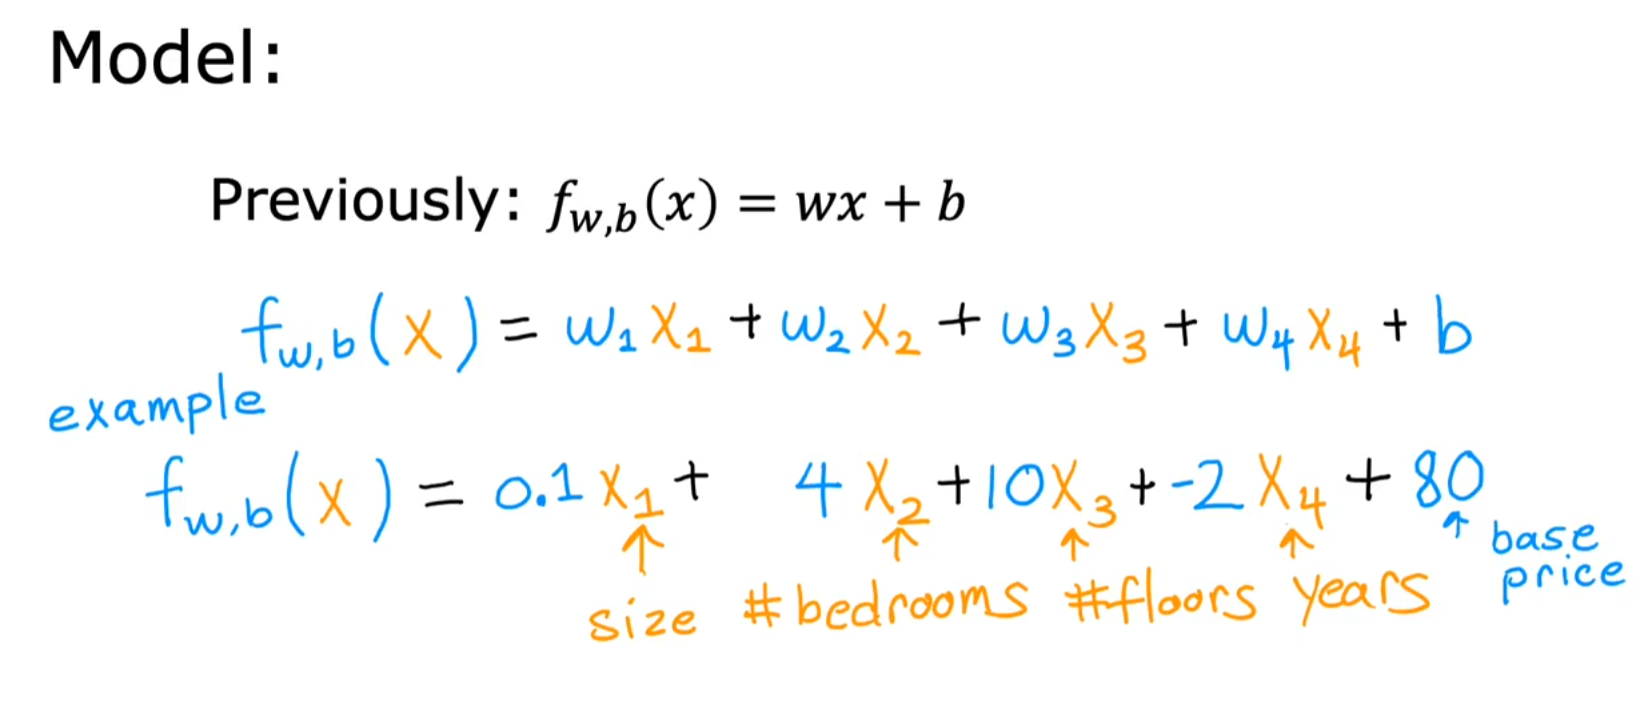 Model:
Previously: f_{w,b}(x) = wx + b
f_{w,b}(x) = w_1 x_1 + w_2 x_2 + w_3 x_3 + w_4 x_4 + b
example
f_{w,b}(x) = 0.1 x_1 + 4 x_2 + 10 x_3 + -2 x_4 + 80
↑ ↑ ↑ ↑ ↑ base price
size #bedrooms #floors years